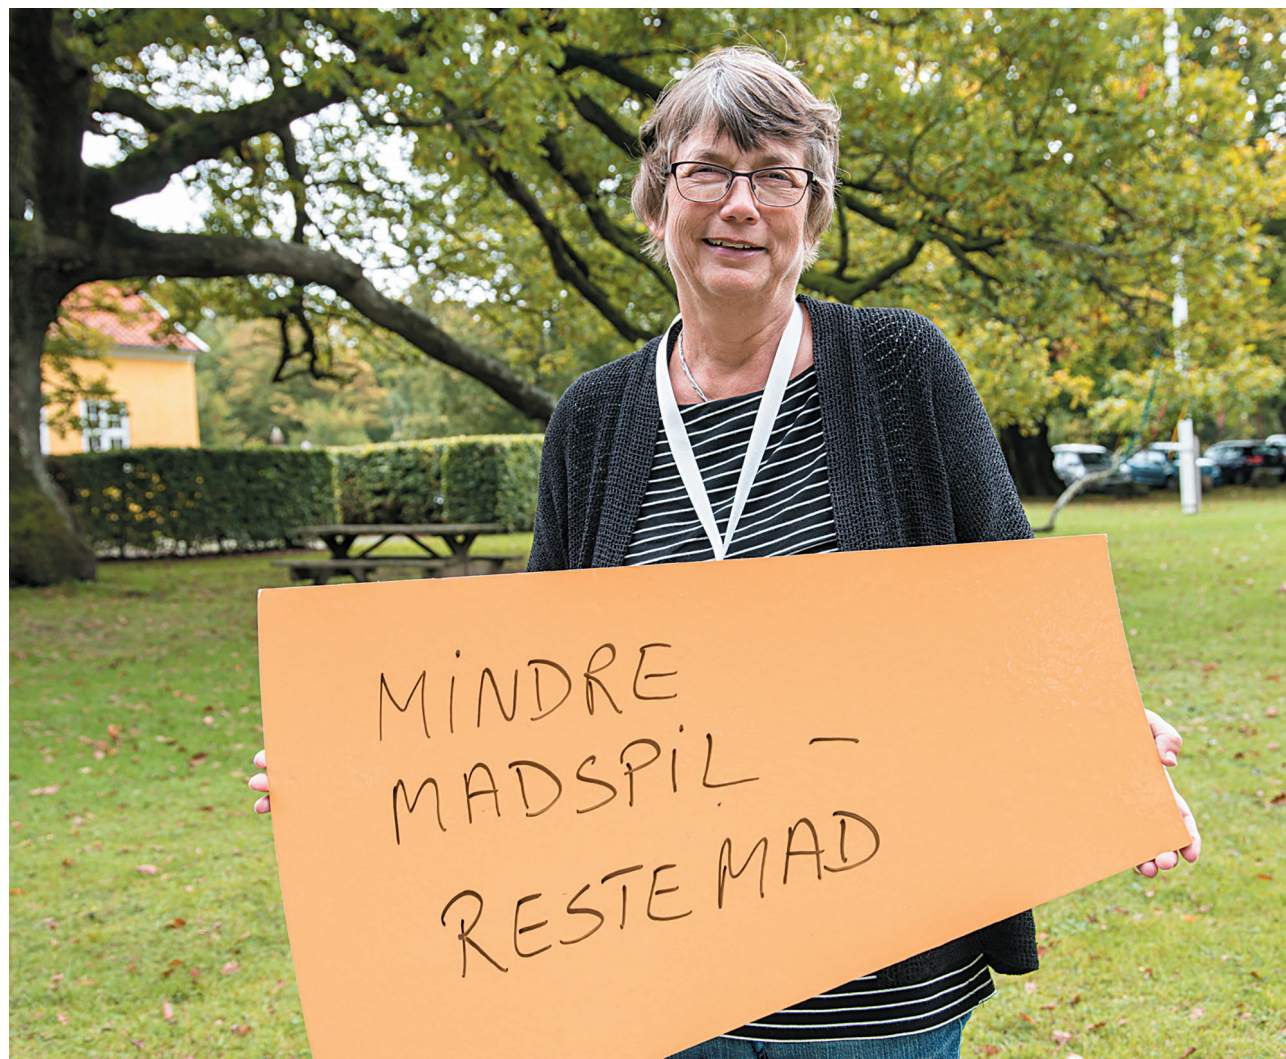 MINDRE
MADSPIL -
RESTEMAD